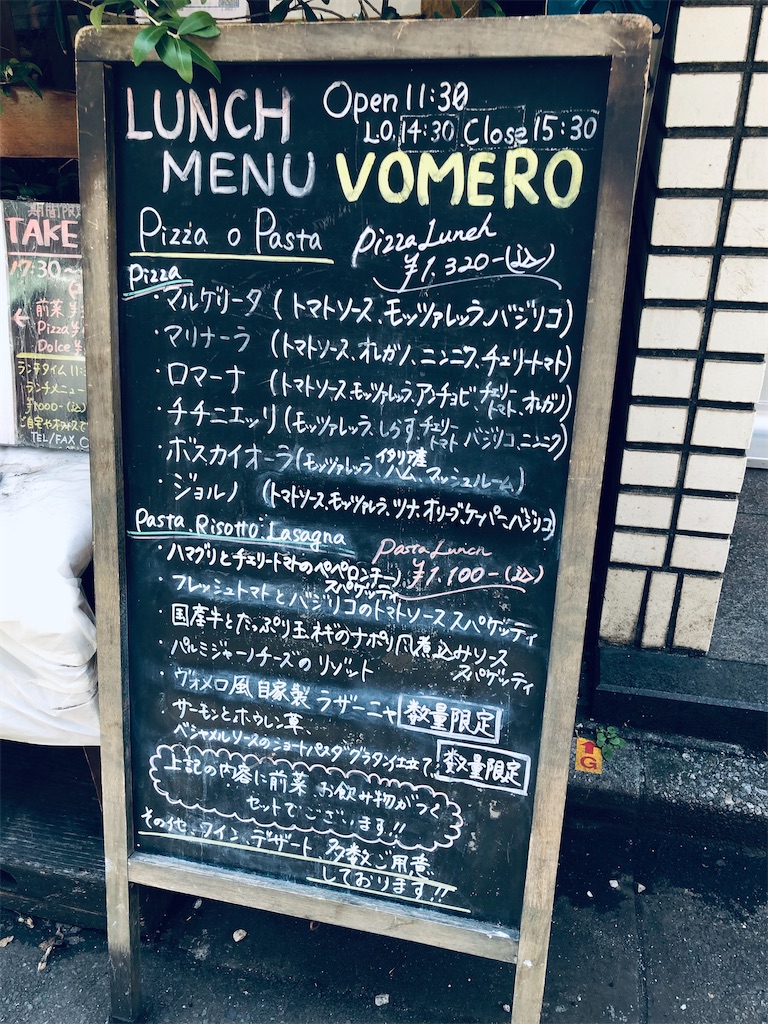 LUNCH MENU
Open 11:30
L.O. 14:30 Close 15:30
VOMERO
Pizza o Pasta
Pizza Lunch
¥1,320-(込)
Pizza
・マルゲリータ(トマトソース、モッツァレッラ、バジリコ)
・マリナーラ(トマトソース、オレガノ、ニンニク、チェリートマト)
・ロマーナ(トマトソース、モッツァレッラ、アンチョビ、チェリートマト、オレガノ)
・チチニエッリ(モッツァレッラ、しらす、チェリートマト、バジリコ、ニンニク)
・ボスカイオーラ(モッツァレッラ、イタリア産ハム、マッシュルーム)
・ジョルノ(トマトソース、モッツァレラ、ツナ、オリーブ、ケーパー、バジリコ)
Pasta Risotto Lasagna
Pasta Lunch
¥1,100-(込)
・ハマグリとチェリートマトのペペロンチーノ スパゲッティ
・フレッシュトマトとバジリコのトマトソース スパゲッティ
・国産牛とたっぷり玉ネギのナポリ風煮込みソース スパゲッティ
・パルミジャーノチーズのリゾット
・ヴォメロ風自家製ラザーニャ 数量限定
・サーモンとホウレン草、
ベシャメルソースのショートパスタグラタン仕立て 数量限定
上記の内容に前菜、お飲み物がつく
セットでございます!!
その他、ワイン、デザート、多数ご用意
しております!!
期間限
TAKE
17:30~
← 前菜
Pizza
Dolce
ランチタイム 11:
ランチメニュー
¥1000-(込)
ご自宅やオフィスで
TEL/FAX
G